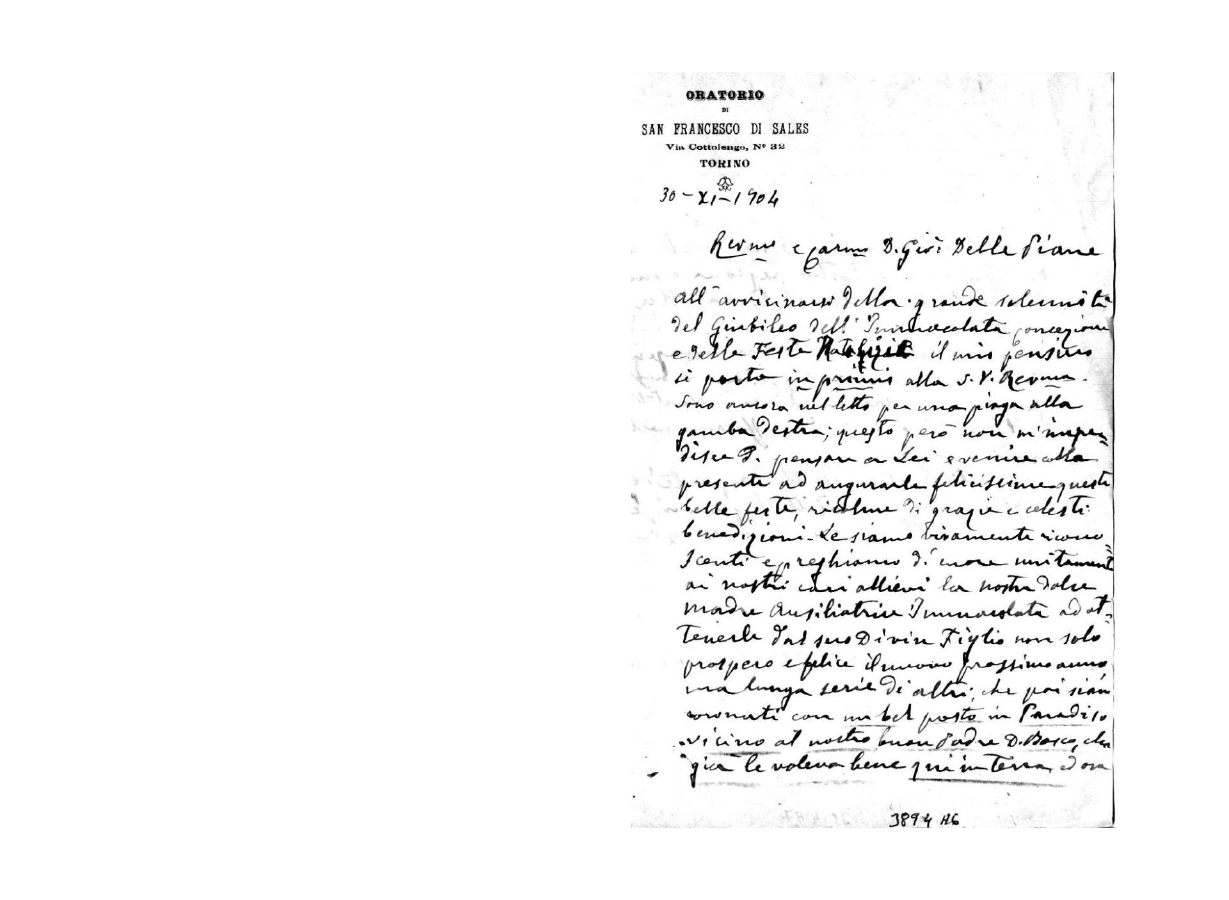 ORATORIO
DI
SAN FRANCESCO DI SALES
Via Cottolengo, Nº 32
TORINO
30-XI-1904
Revmo e Carmo D. Giō: Delle Piane
all'avvicinarsi della grande solennità
del Giubileo dell'Immacolata concezione
e delle Feste Natalizie il mio pensiero
si porta in primis alla S. V. Revma.
Sono ancora nel letto per una piaga alla
gamba destra; questo però non m'impe=
disce di pensare a Lei e venire colla
presente ad augurarle felicissime queste
belle feste, ricolme di grazie e celesti
benedizioni. Le siamo vivamente ricono=
scenti e preghiamo di cuore unitamente
ai nostri cari allievi la nostra dolce
Madre Ausiliatrice Immacolata ad ot=
tenerle dal suo Divin Figlio non solo
prospero e felice il nuovo prossimo anno
ma lunga serie di altri, che poi sian
coronati con un bel posto in Paradiso
vicino al nostro buon Padre D. Bosco, che
già le voleva bene qui in terra, ed ora
3894 A6